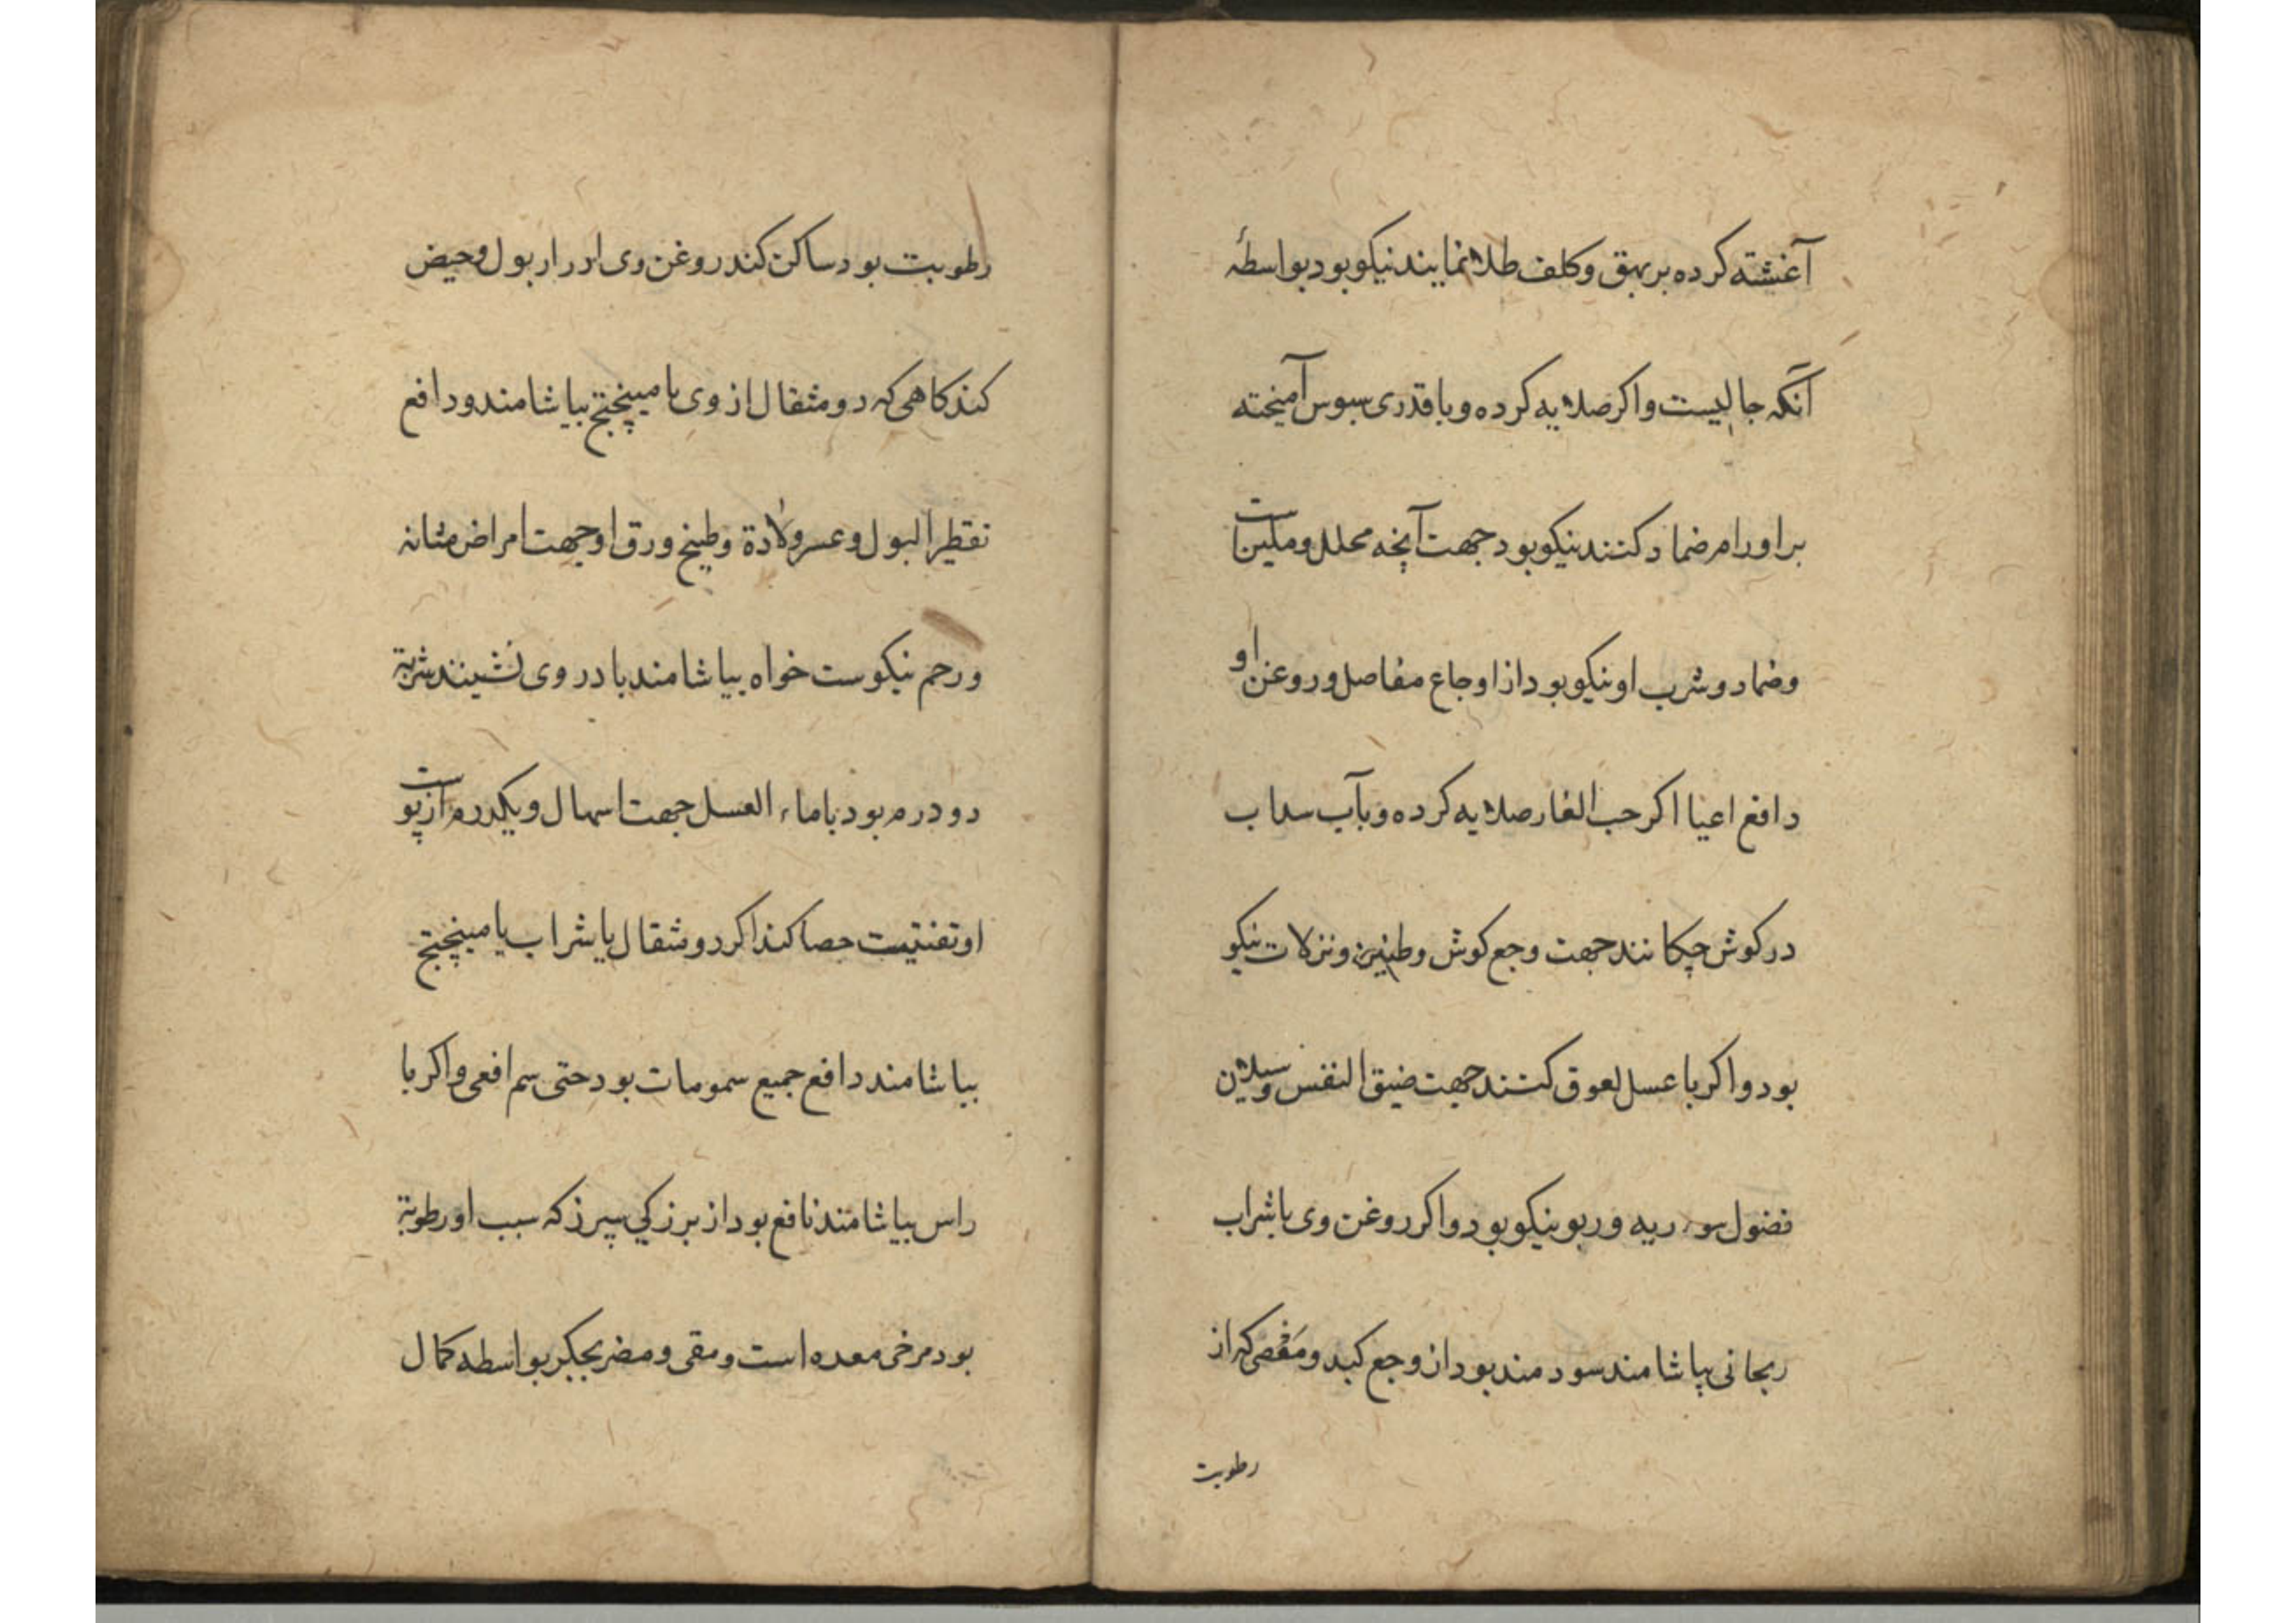 آغشته کرده بر بهق و کلف طلا نمایند نیکو بود بواسطهٔ
آنکه جالیست و اکر صلایه کرده و با قدری سبوس آمیخته
بر اورام ضماد کنند نیکو بود جهت آنچه محلل و ملین است
و ضماد و شرب او نیکو بود از اوجاع مفاصل و روغن او
دافع اعیا اکر حب الغار صلایه کرده و بآب سداب
در کوش چکانند جهت وجع کوش و طنین و نزلات نیکو
بود و اکر با عسل لعوق کنند جهت ضیق النفس و سیلان
فضول سوء ریه و ربو نیکو بود و اکر روغن وی با شراب
ریحانی بیاشامند سودمند بود از وجع کبد و مغص که از
رطوبت
رطوبت بود ساکن کند روغن وی ادرار بول و حیض
کند کاهی که دو مثقال از وی با میپختج بیاشامند و دافع
تقطیر البول و عسر ولادة و طبیخ ورق او جهت امراض مثانه
و رحم نیکوست خواه بیاشامند یا در وی نشینند شربة
دو درم بود با ماء العسل جهت اسهال و یکدرم از پوست
او تفتیت حصا کند اکر دو مثقال با شراب یا میپختج
بیاشامند دافع جمیع سمومات بود حتی سم افعی و اکر با
راس بیاشامند نافع بود از بزرکی سپرز که سبب او رطوبة
بود مرخی معده است و مقی و مضر بجکر بواسطه کمال